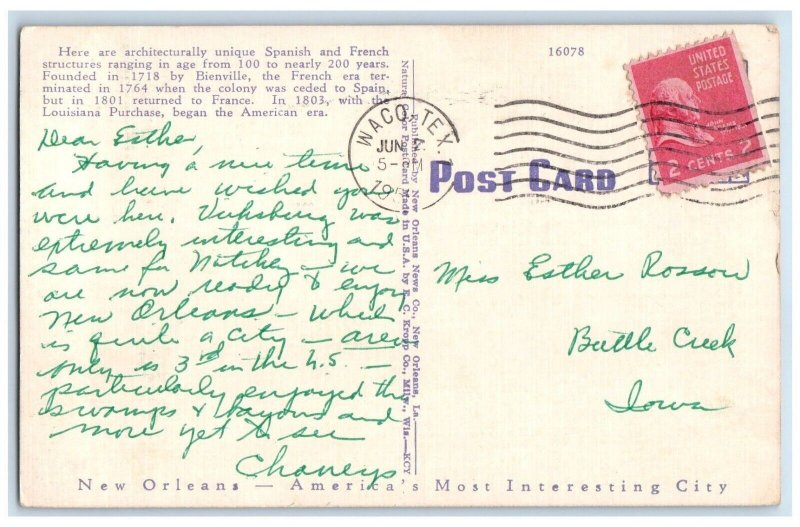 Here are architecturally unique Spanish and French
structures ranging in age from 100 to nearly 200 years.
Founded in 1718 by Bienville, the French era ter-
minated in 1764 when the colony was ceded to Spain,
but in 1801 returned to France. In 1803, with the
Louisiana Purchase, began the American era.
Dear Esther,
Having a nice time
and have wished you
were here. Vicksburg was
extremely interesting and
same for Natchez — we
are now ready to enjoy
New Orleans — which
is quite a city — area
only is 3rd in the U.S. —
particularly enjoyed the
swamps & bayous and
more yet to see
Chaneys
Published by New Orleans News Co., New Orleans, La.
Natural Color Post Card Made in U.S.A. by E. C. Kropp Co., Milw., Wis.—KCY
16078
WACO, TEX.
JUN
5-
19
UNITED
STATES
POSTAGE
JOHN
2 CENTS 2
POST CARD
Miss Esther Rosson
Battle Creek
Iowa
New Orleans — America's Most Interesting City